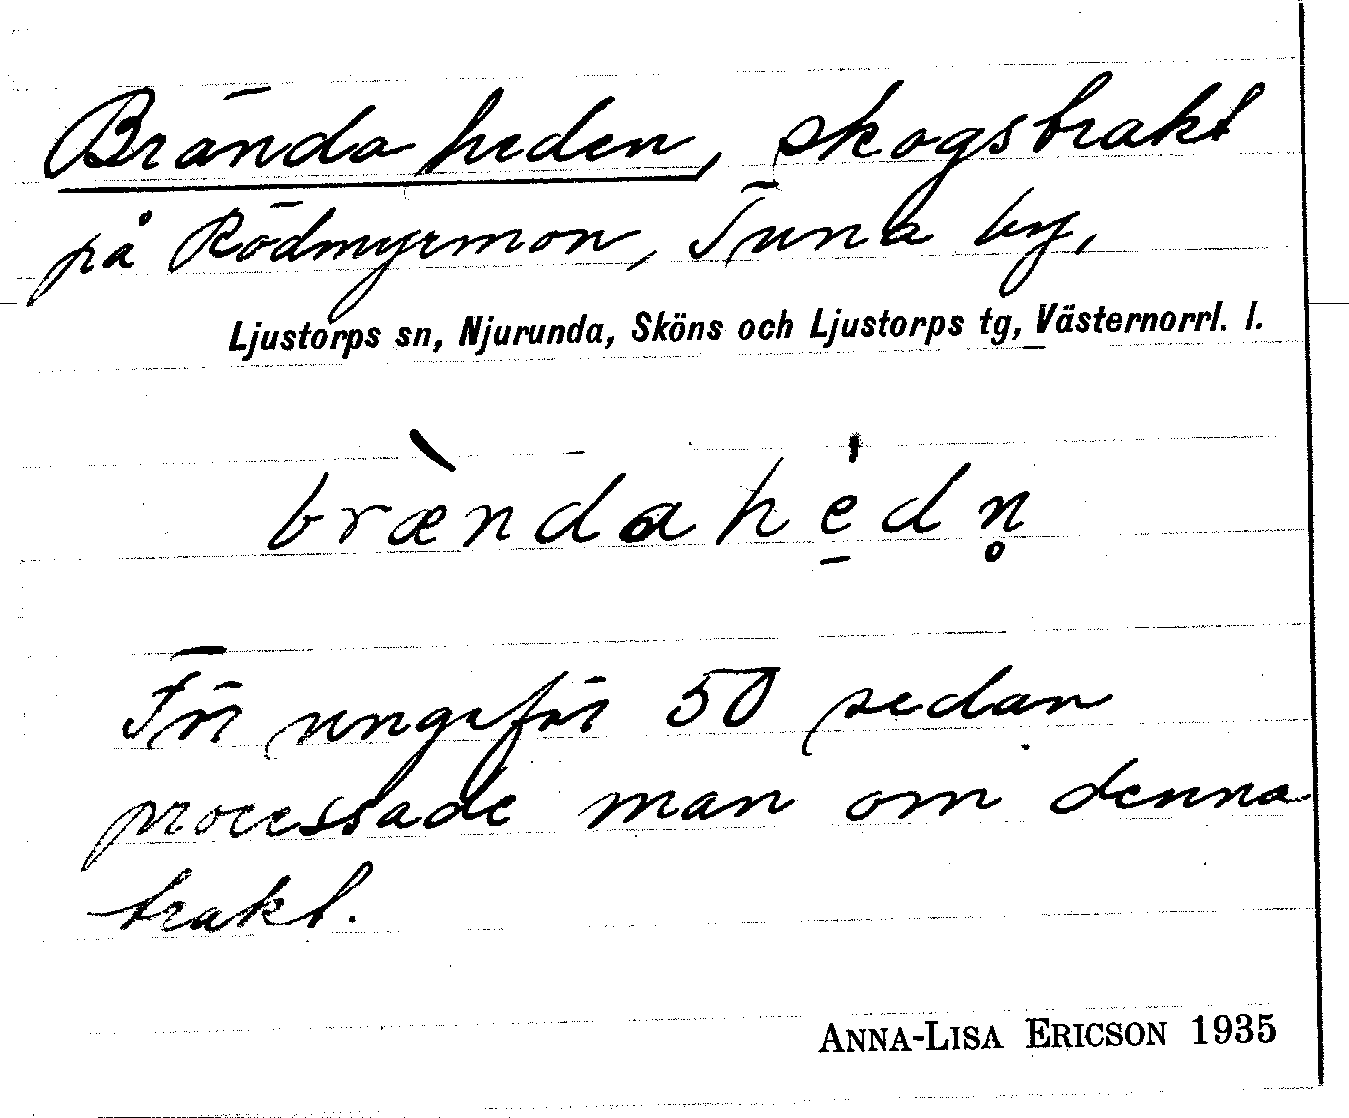 Brända heden, skogstrakt
på Rödmyrmon, Tuna by,
Ljustorps sn, Njurunda, Sköns och Ljustorps tg, Västernorrl. l.
brændahedn̥
För ungefär 50 sedan
processade man om denna
trakt.
ANNA-LISA ERICSON 1935